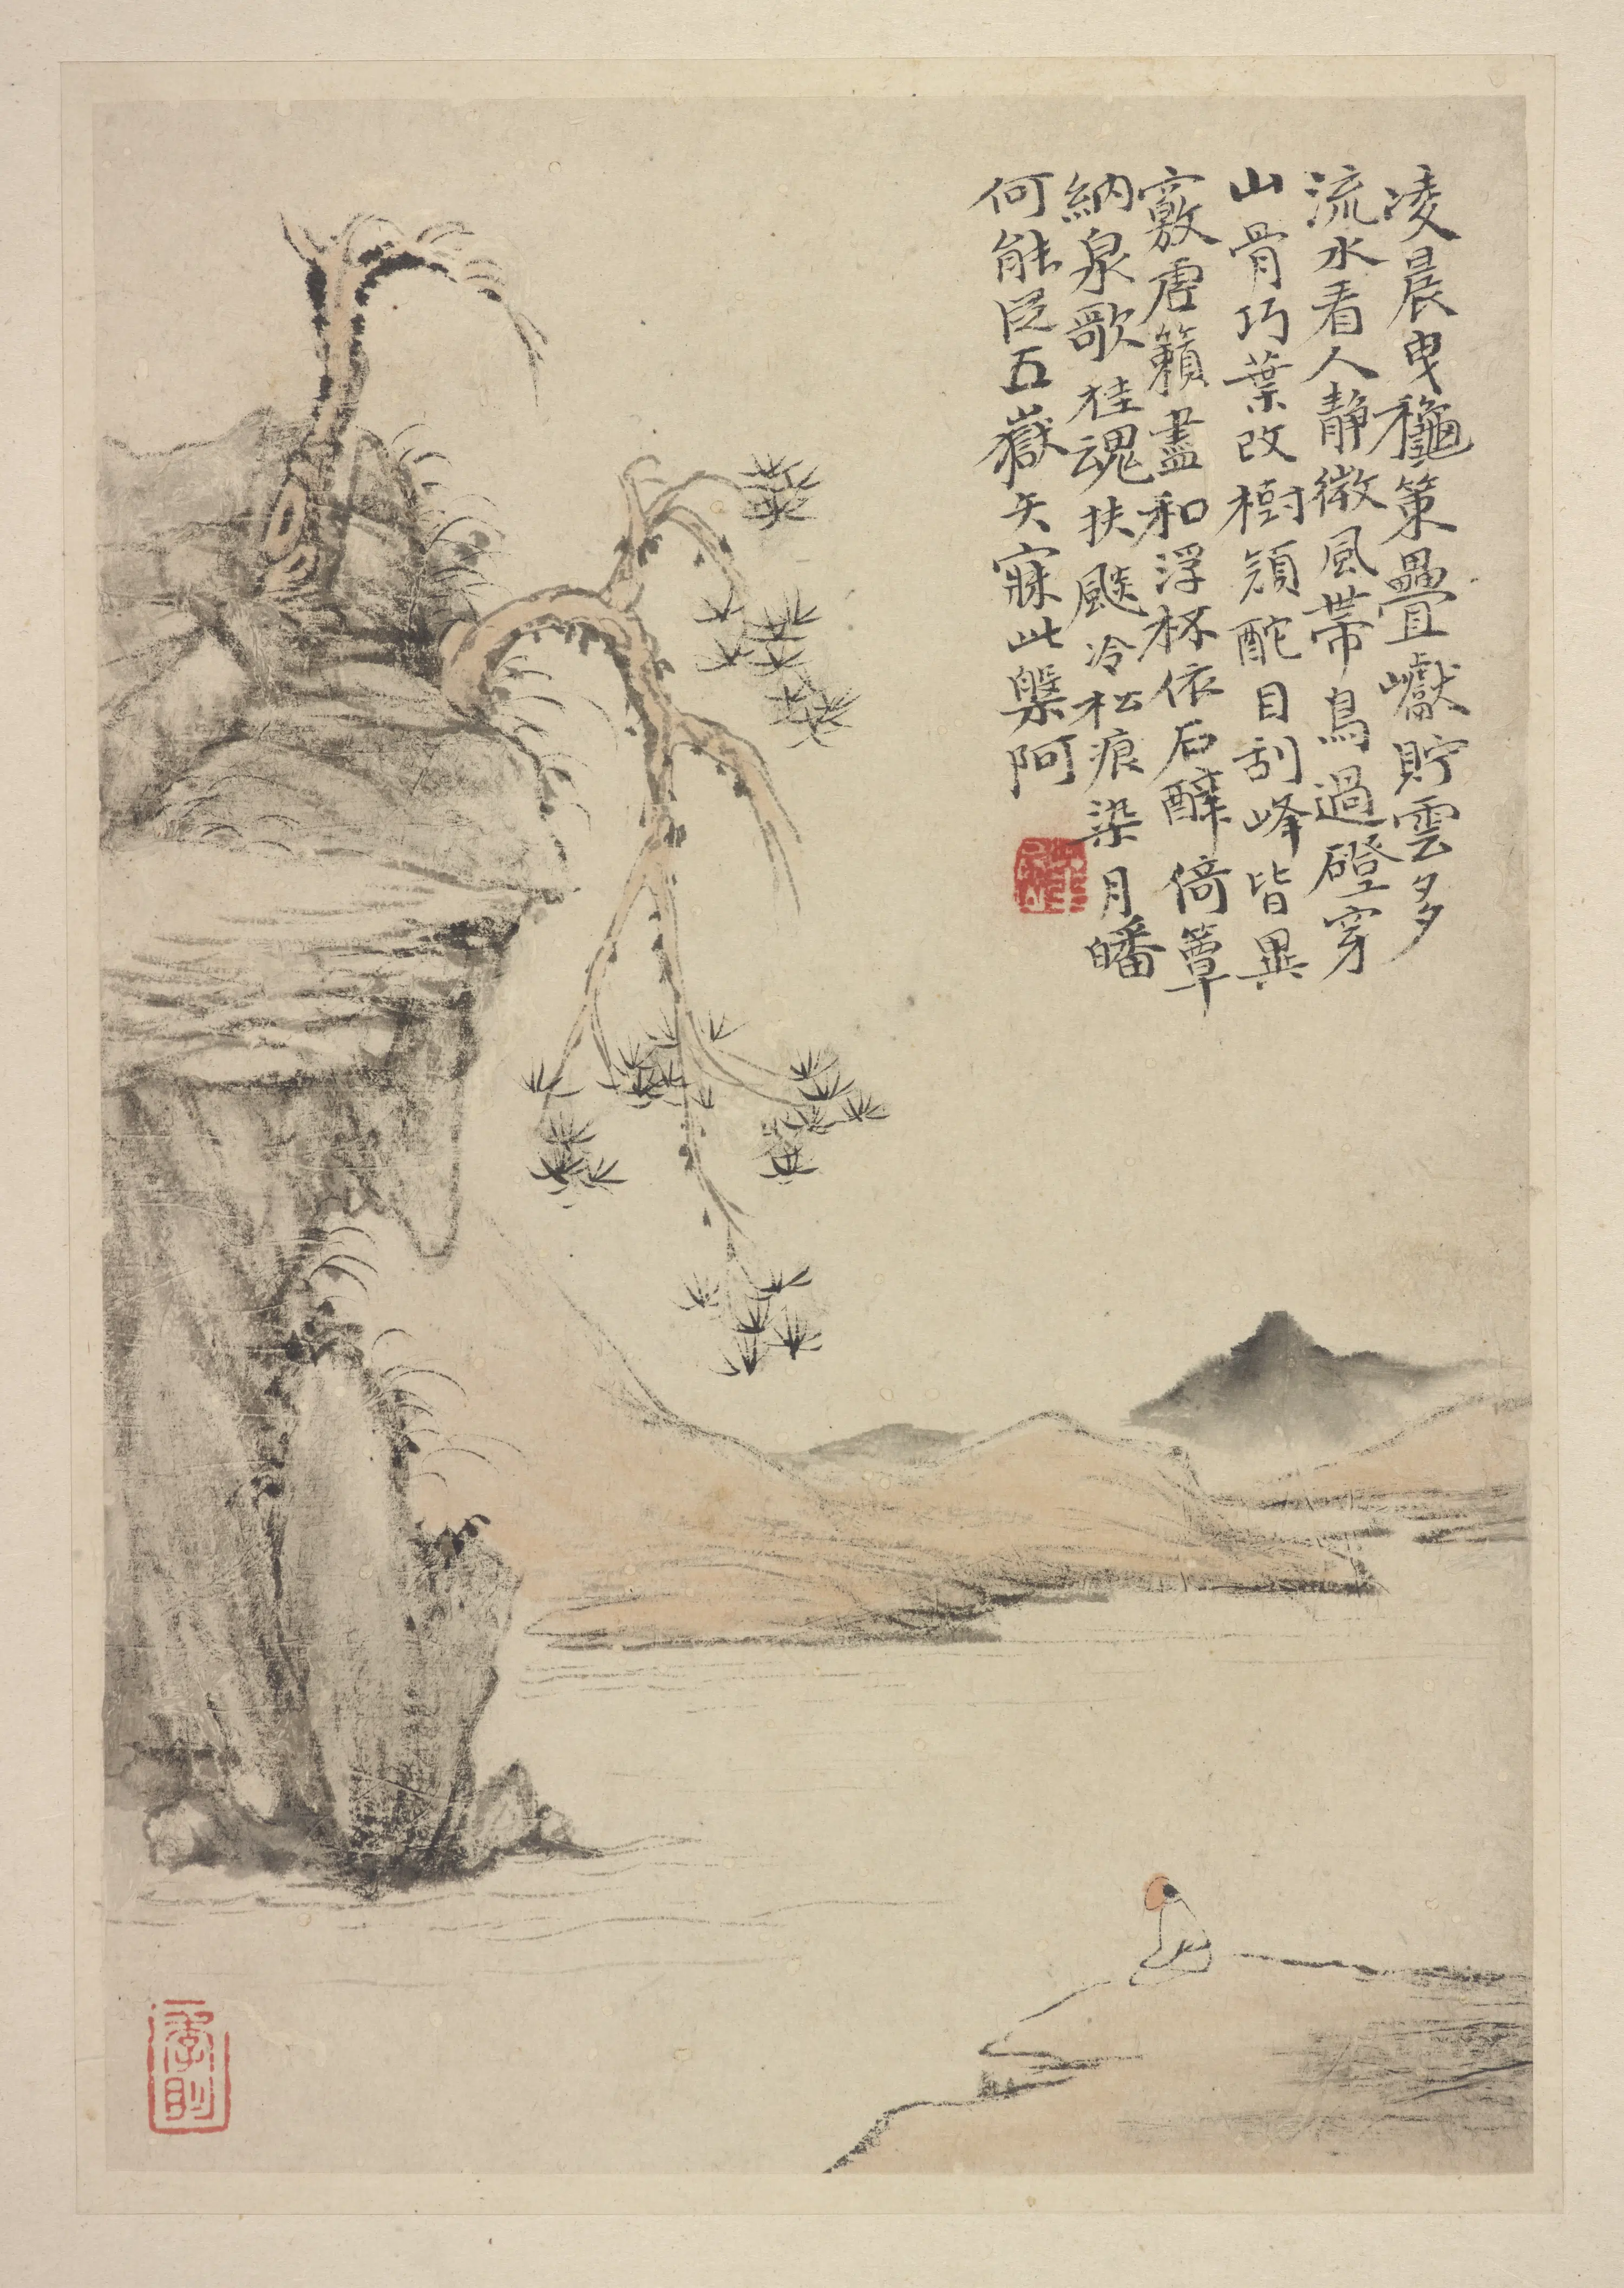 凌晨曳龝策疊巘貯雲多
流水看人靜微風帶鳥過磴穿
山骨巧葉改樹頽酡目刮峰皆異
竅敷虗籟盡和浮杯依石醉倚蕈
納泉歌桂魂扶颷冷松痕染月皤
何能民五嶽矢寐此槃阿